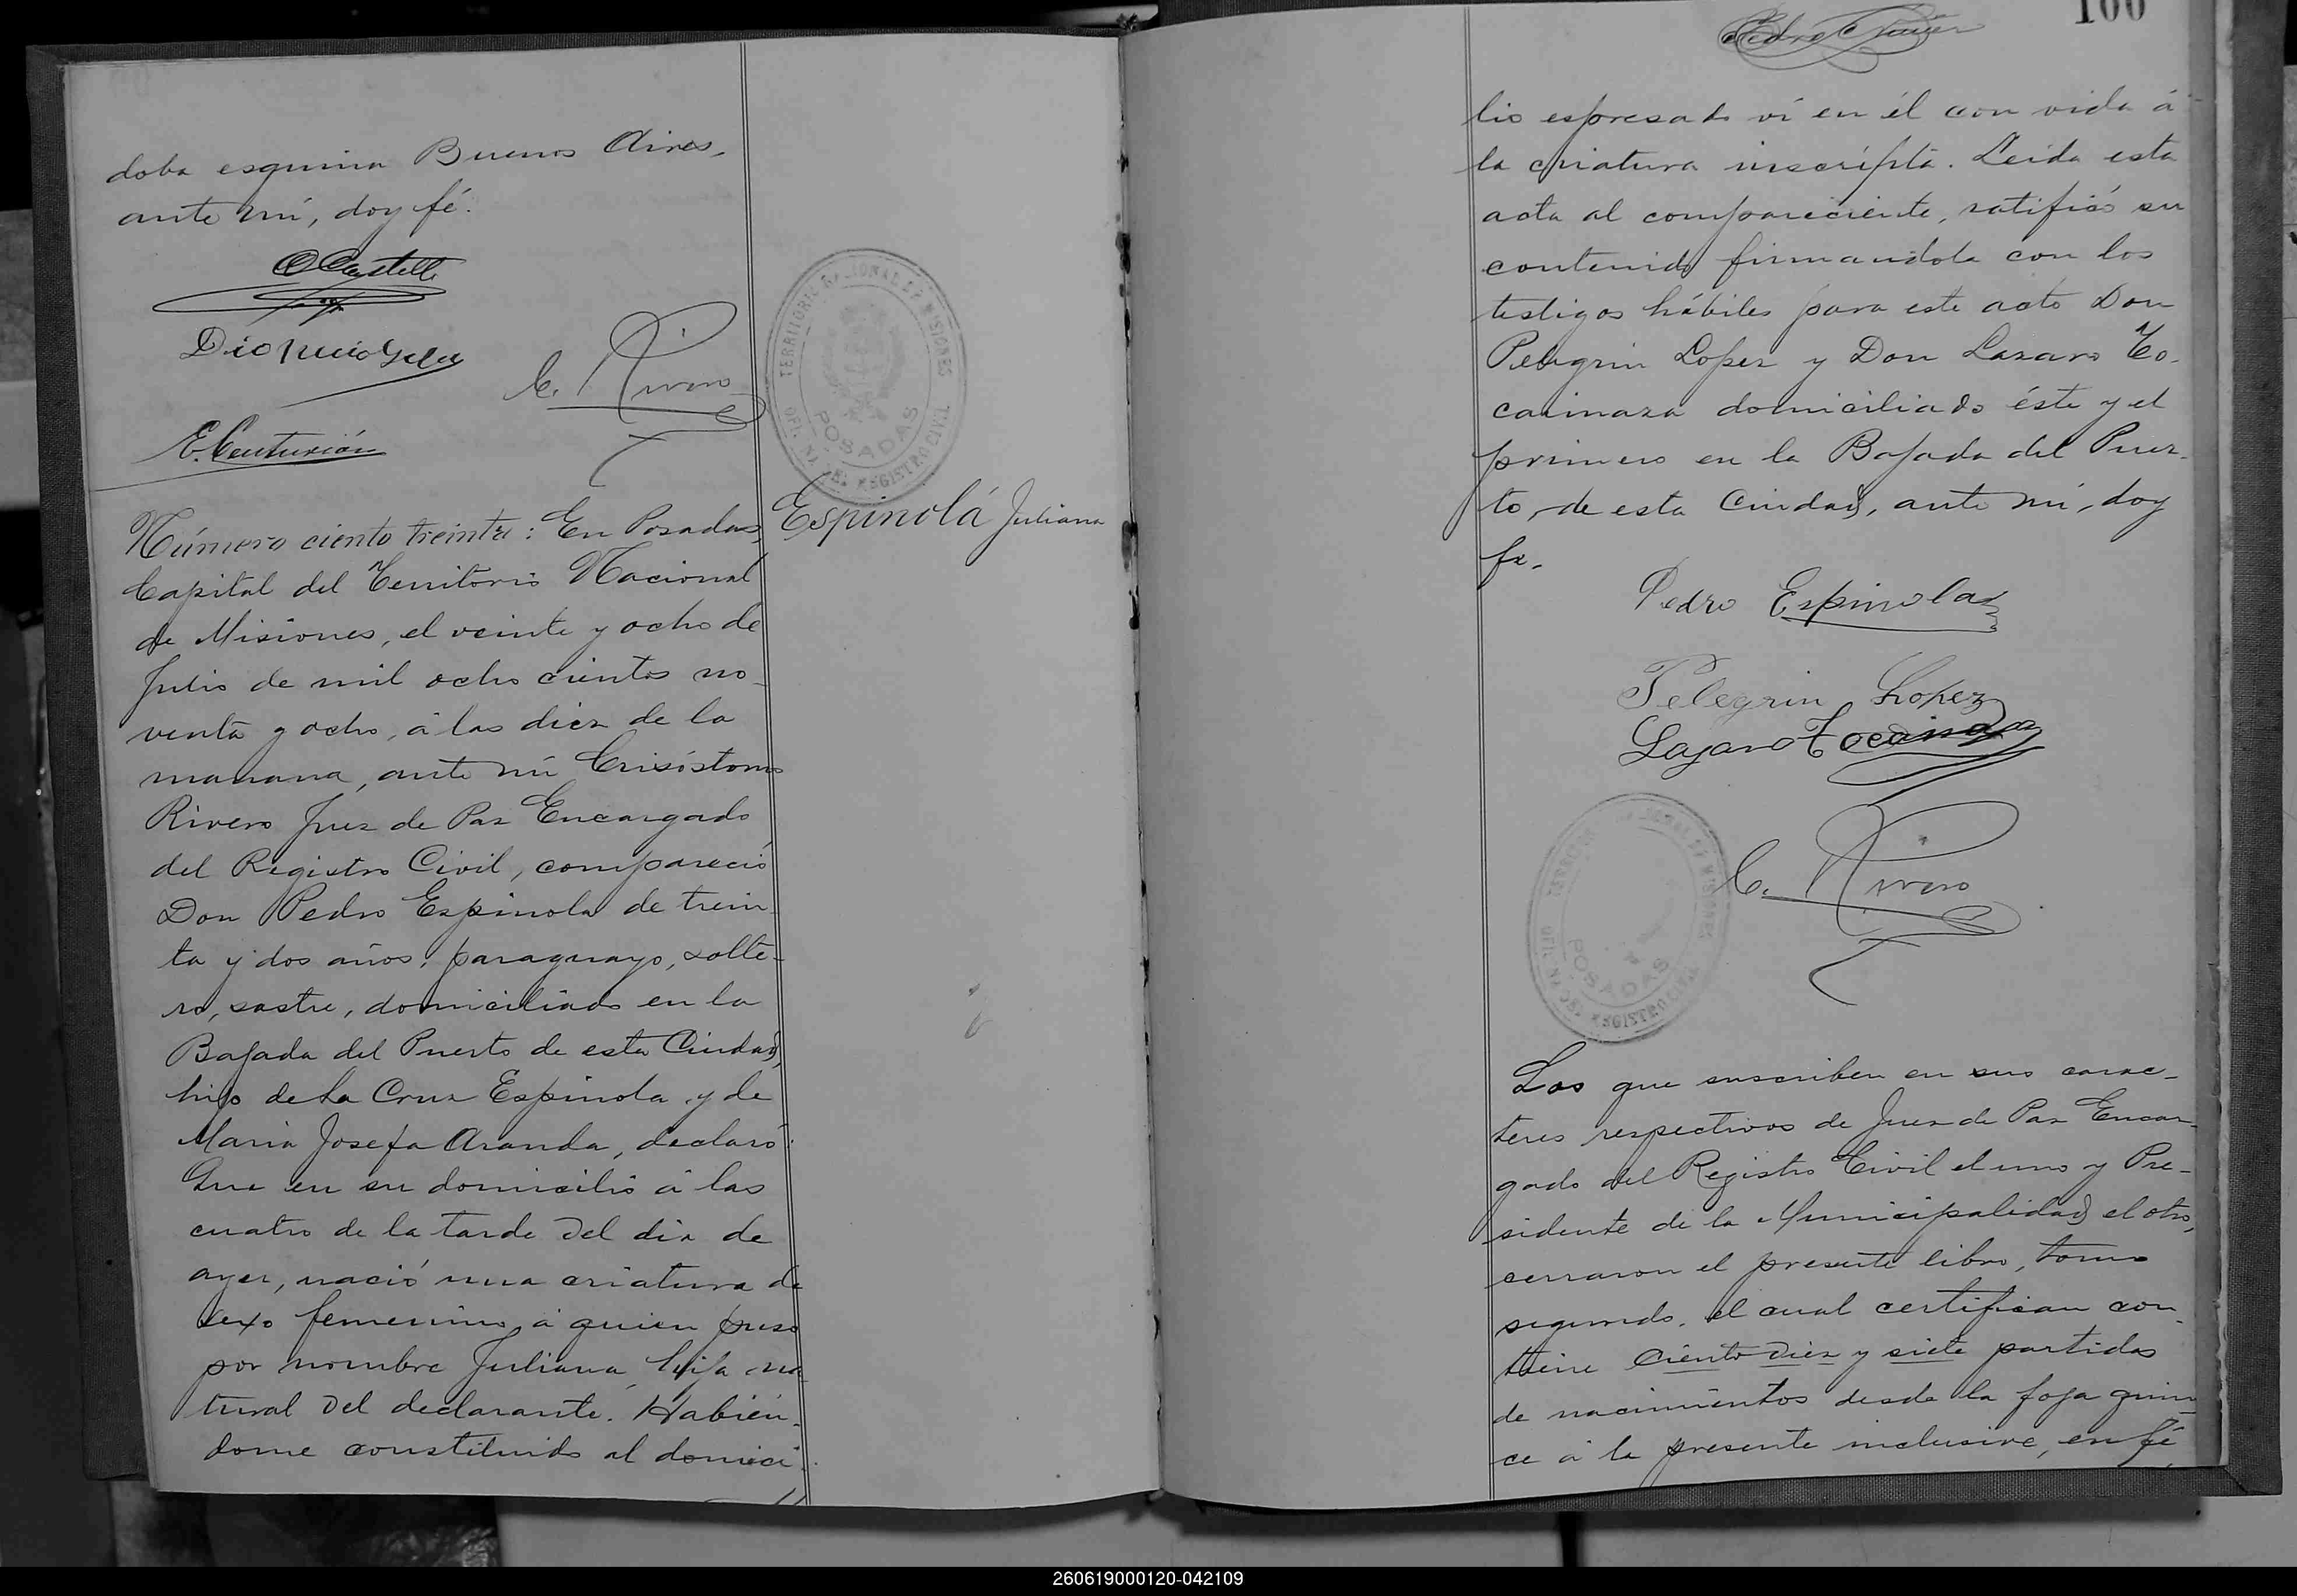 doba esquina Buenos Aires,
ante mí, doy fé.
E. Centurión
C. Rivero
TERRITORIO NACIONAL DE MISIONES
POSADAS
REGISTRO CIVIL
Espinolá Juliana
Número ciento treinta: En Posadas,
Capital del Territorio Nacional
de Misiones, el veinte y ocho de
Julio de mil ocho cientos no-
venta y ocho, á las diez de la
manana, ante mí Crisóstomo
Rivero Juez de Paz Encargado
del Registro Civil, compareció
Don Pedro Espinola de trein-
ta y dos años, paraguayo, solte-
ro, sastre, domiciliado en la
Bajada del Puerto de esta Ciudad,
hijo de La Cruz Espinola y de
Maria Josefa Aranda, declaró:
Que en su domicilio á las
cuatro de la tarde del dia de
ayer, nació una criatura de
sexo femenino, á quien puso
por nombre Juliana, hija na-
tural del declarante. Habien-
dome constituido al domici-
100
lio espresado ví en él con vida á
la criatura inscripta. Leida esta
acta al compareciente, ratificó su
contenido firmandola con los
testigos hábiles para este acto Don
Pelegrin Lopez y Don Lazaro To-
carinaza domiciliado éste y el
primero en la Bajada del Puer-
to, de esta Ciudad, ante mí, doy
fe.
Pedro Espinola
Pelegrin Lopez
Lazaro
C. Rivero
POSADAS
REGISTRO CIVIL
Los que suscriben en sus carac-
teres respectivos de Juez de Paz Encar-
gado del Registro Civil el uno y Pre-
sidente de la Municipalidad el otro,
cerraron el presente libro, tomo
segundo, el cual certifican con-
tiene ciento diez y siete partidas
de nacimientos desde la foja quin-
ce á la presente inclusive, en fé
260619000120-042109